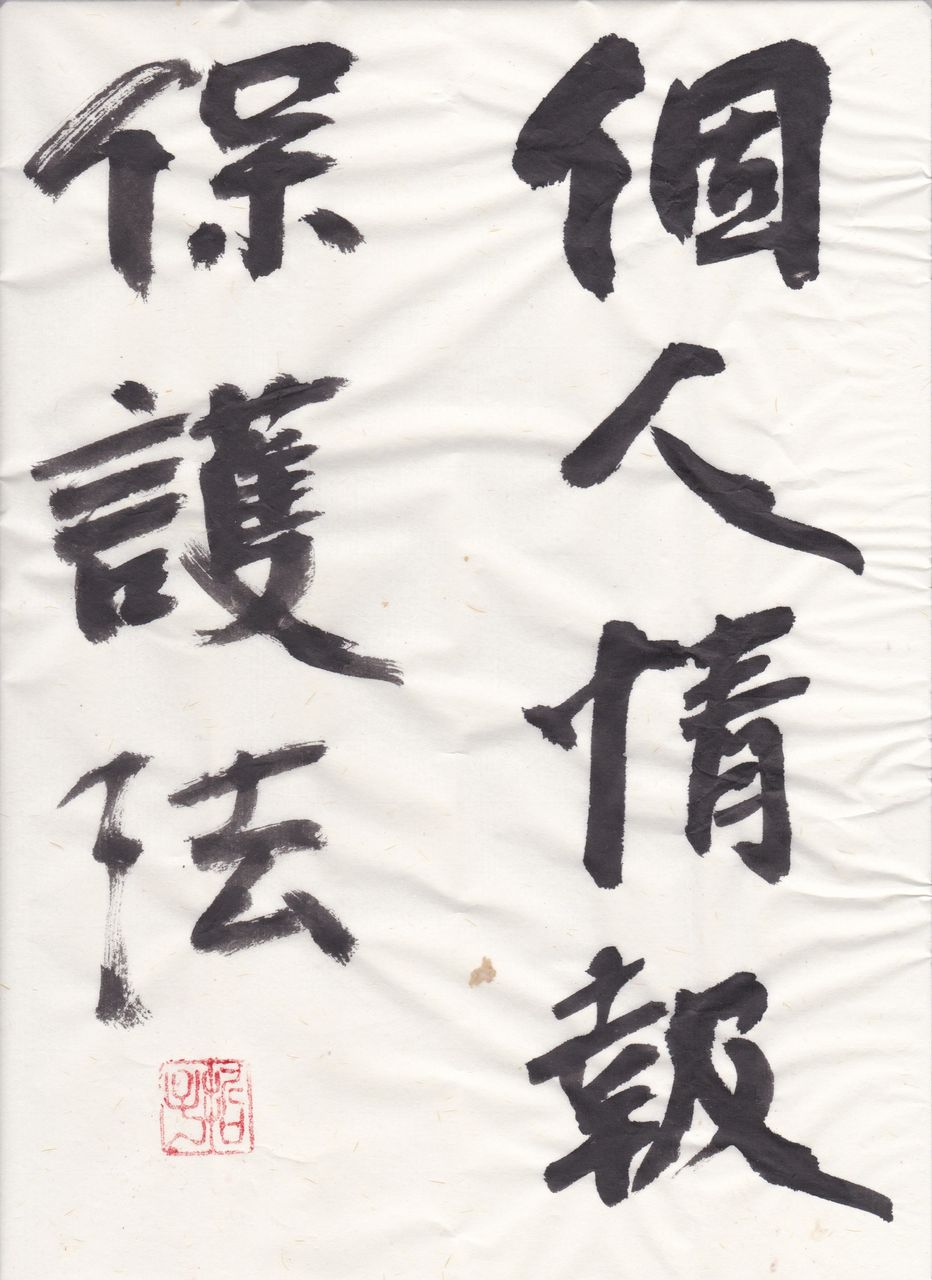 個人情報
保護法